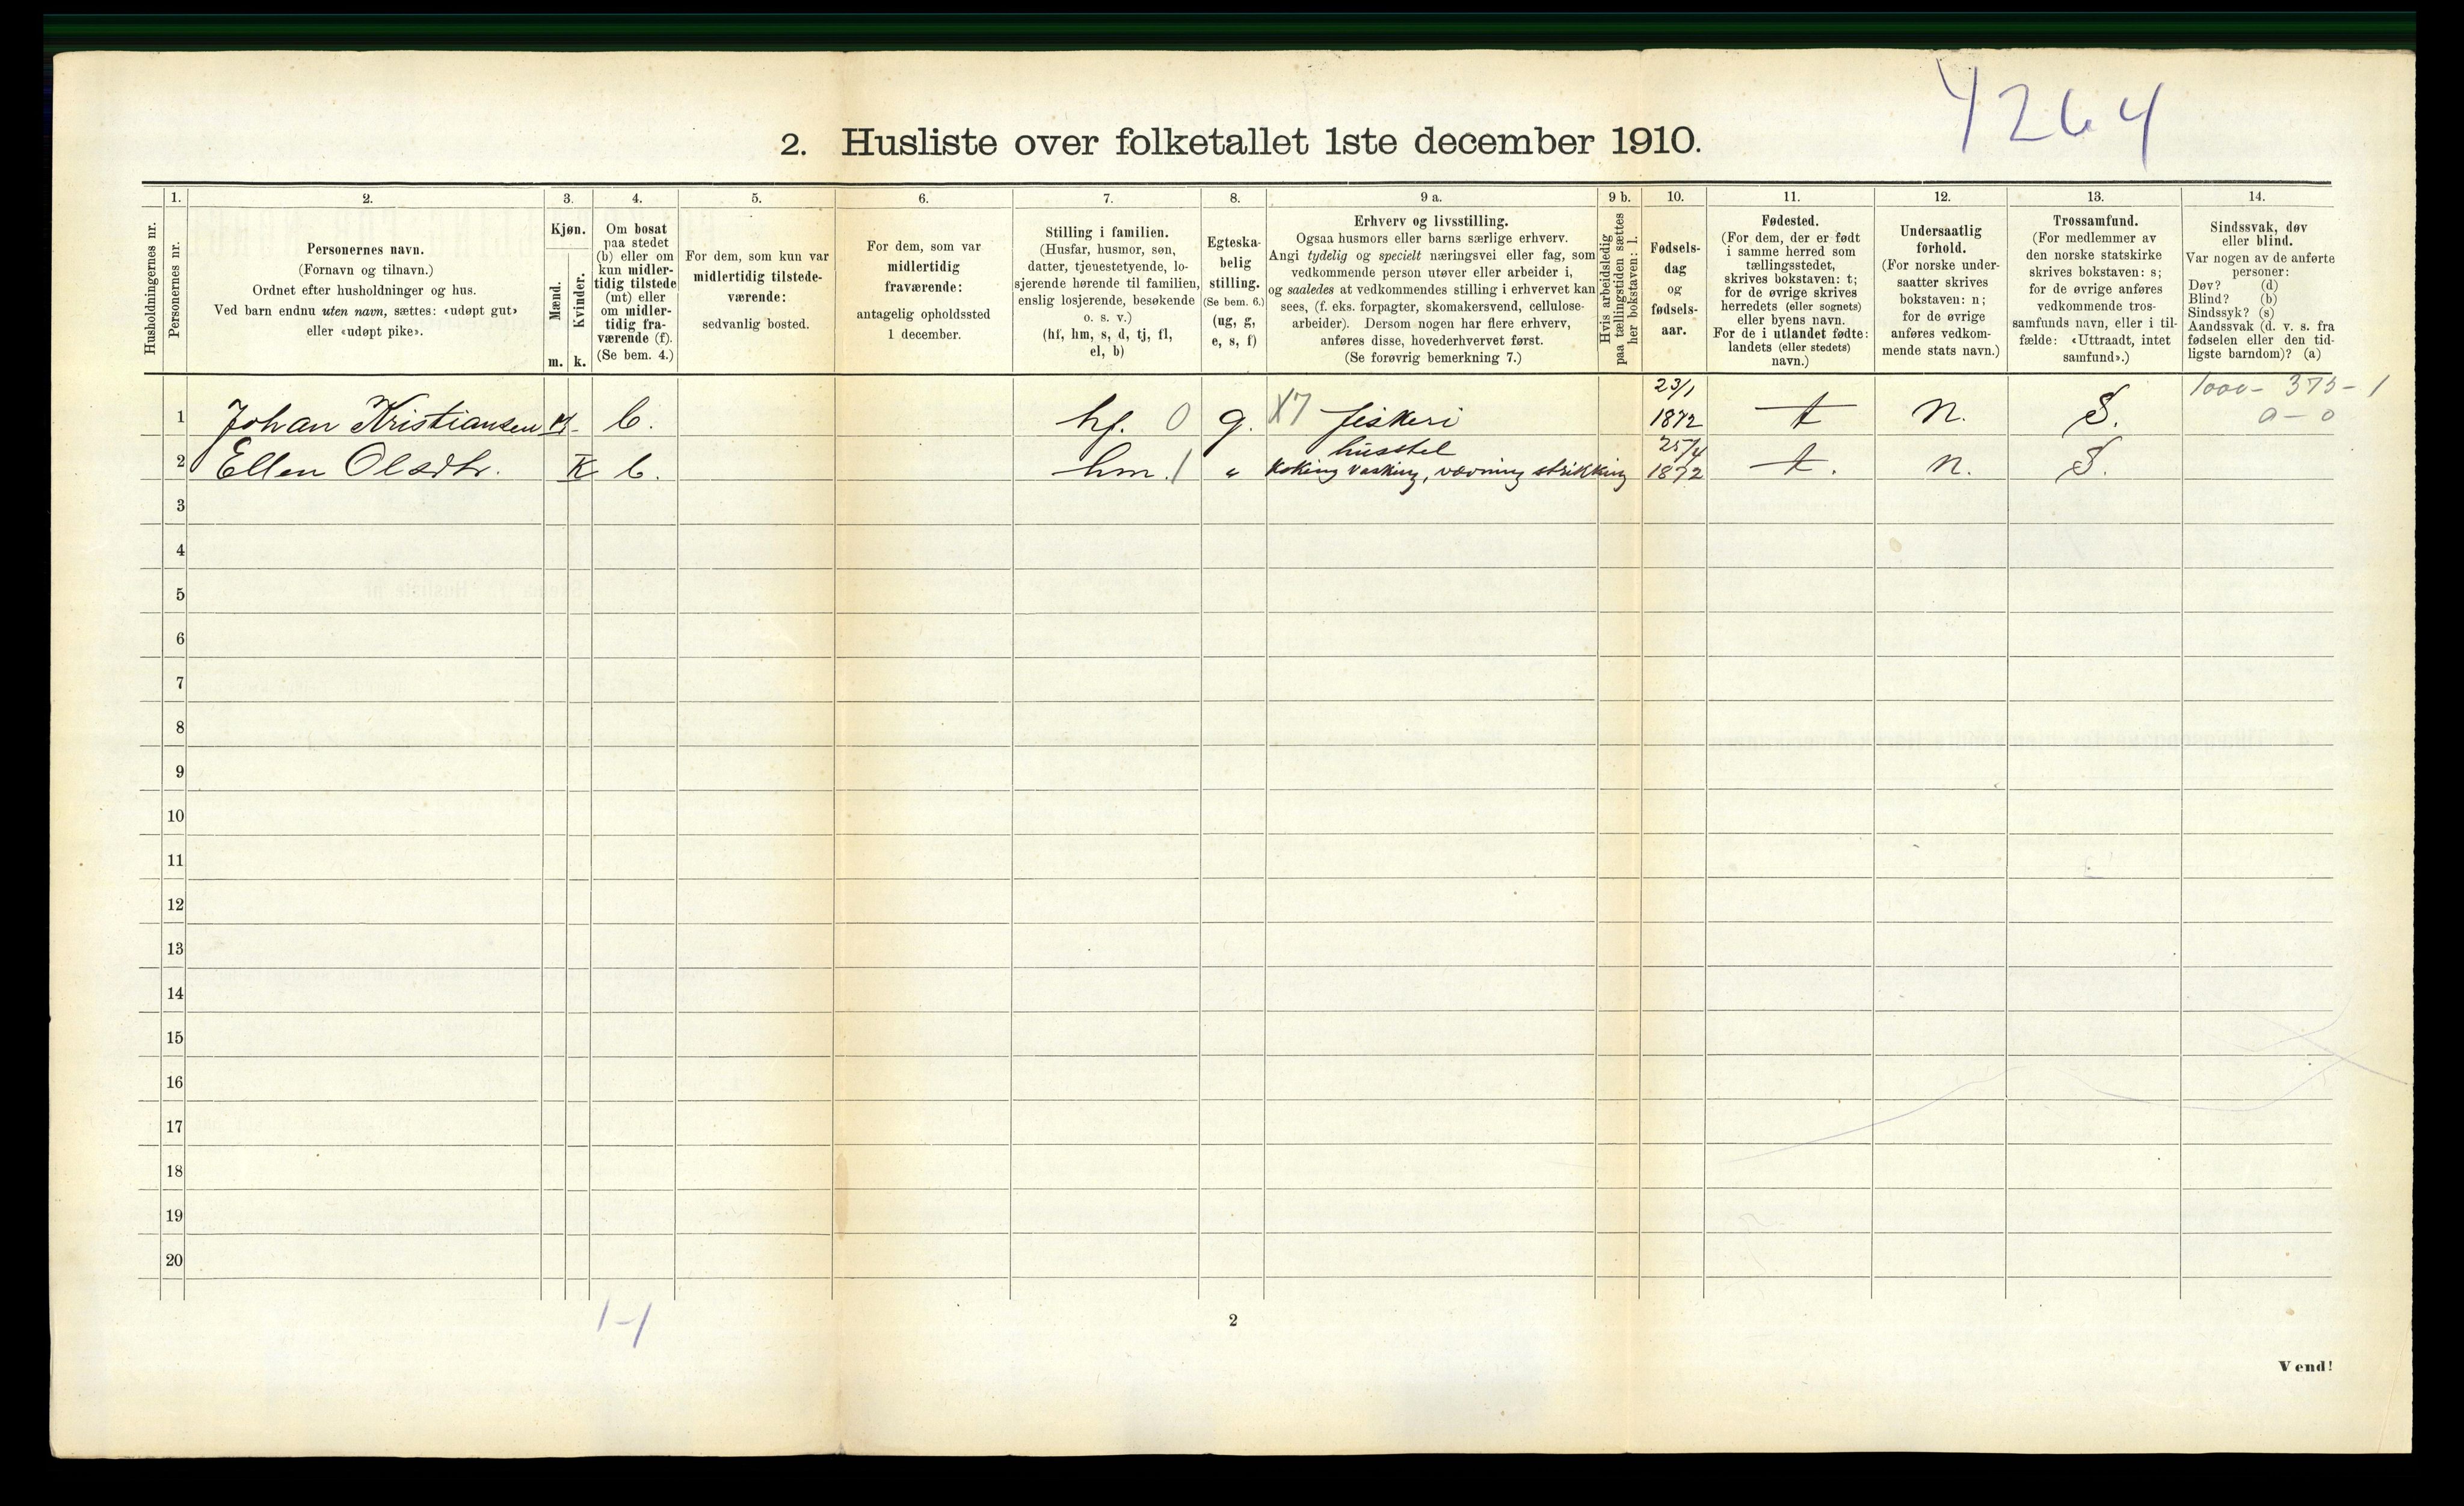 4264
2. Husliste over folketallet 1ste december 1910.
Husholdningernes nr.
1.
Personernes nr.
2.
Personernes navn.
(Fornavn og tilnavn.)
Ordnet efter husholdninger og hus.
Ved barn endnu uten navn, sættes: «udøpt gut»
eller «udøpt pike».
3.
Kjøn.
Mænd.
Kvinder.
m. k.
4.
Om bosat
paa stedet
(b) eller om
kun midler-
tidig tilstede
(mt) eller
om midler-
tidig fra-
værende (f).
(Se bem. 4.)
5.
For dem, som kun var
midlertidig tilstede-
værende:
sedvanlig bosted.
6.
For dem, som var
midlertidig
fraværende:
antagelig opholdssted
1 december.
7.
Stilling i familien.
(Husfar, husmor, søn,
datter, tjenestetyende, lo-
sjerende hørende til familien,
enslig losjerende, besøkende
o. s. v.)
(hf, hm, s, d, tj, fl,
el, b)
8.
Egteska-
belig
stilling.
(Se bem. 6.)
(ug, g,
e, s, f)
9 a.
Erhverv og livsstilling.
Ogsaa husmors eller barns særlige erhverv.
Angi tydelig og specielt næringsvei eller fag, som
vedkommende person utøver eller arbeider i,
og saaledes at vedkommendes stilling i erhvervet kan
sees, (f. eks. forpagter, skomakersvend, cellulose-
arbeider). Dersom nogen har flere erhverv,
anføres disse, hovederhvervet først.
(Se forøvrig bemerkning 7.)
9 b.
Hvis arbeidsledig
paa tællingstiden sættes
her bokstaven: l.
10.
Fødsels-
dag
og
fødsels-
aar.
11.
Fødested.
(For dem, der er født
i samme herred som
tællingsstedet,
skrives bokstaven: t;
for de øvrige skrives
herredets (eller sognets)
eller byens navn.
For de i utlandet fødte:
landets (eller stedets)
navn.)
12.
Undersaatlig
forhold.
(For norske under-
saatter skrives
bokstaven: n;
for de øvrige
anføres vedkom-
mende stats navn.)
13.
Trossamfund.
(For medlemmer av
den norske statskirke
skrives bokstaven: s;
for de øvrige anføres
vedkommende tros-
samfunds navn, eller i til-
fælde: «Uttraadt, intet
samfund».)
14.
Sindssvak, døv
eller blind.
Var nogen av de anførte
personer:
Døv? (d)
Blind? (b)
Sindssyk? (s)
Aandssvak (d. v. s. fra
fødselen eller den tid-
ligste barndom)? (a)
1000 - 375 - 1
0 - 0
1 Johan Kristiansen M. b. hf. 0 g. X7 fiskeri 23/1 1872 t n. S.
2 Ellen Olsdtr. K b. hm. 1 " husstel koking vasking, vævning strikking 25/4 1872 t. n. S.
3
4
5
6
7
8
9
10
11
12
13
14
15
16
17
18
19
20
1-1
2
Vend!